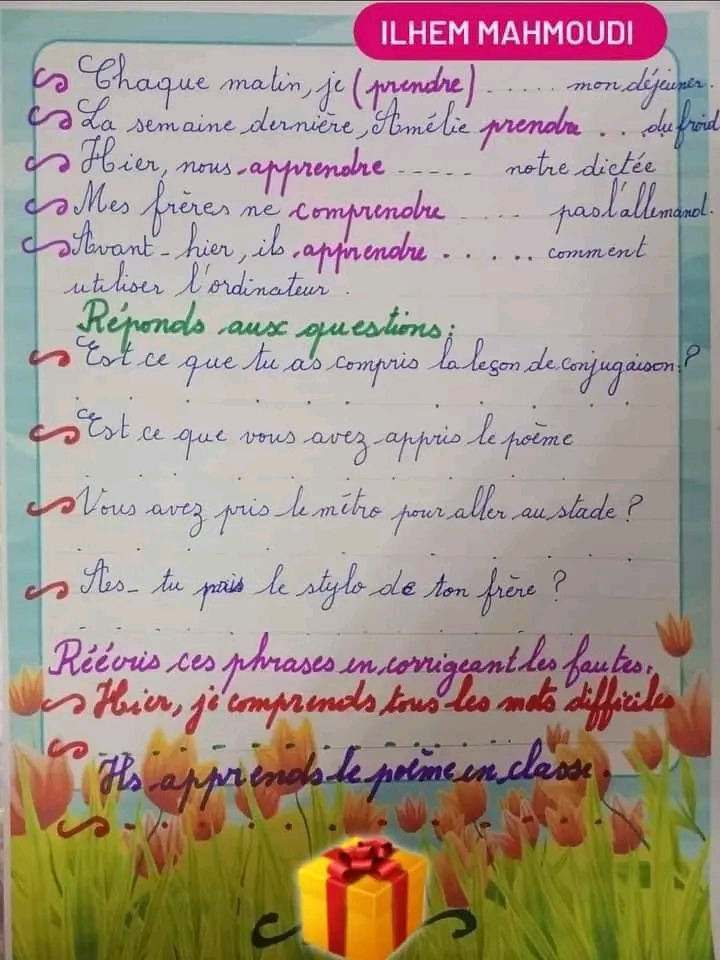 ILHEM MAHMOUDI
Chaque matin, je (prendre) ..... mon déjeuner.
La semaine dernière, Amélie prendre .. du froid
Hier, nous apprendre ----- notre dictée
Mes frères ne comprendre .... pas l'allemand.
Avant-hier, ils apprendre ..... comment
utiliser l'ordinateur.
Réponds aux questions:
Est ce que tu as compris la leçon de conjugaison?
Est ce que vous avez appris le poème
Vous avez pris le métro pour aller au stade?
As-tu pris le stylo de ton frère?
Réécris ces phrases en corrigeant les fautes.
Hier, je comprends tous les mots difficiles
Ils apprends le poème en classe.